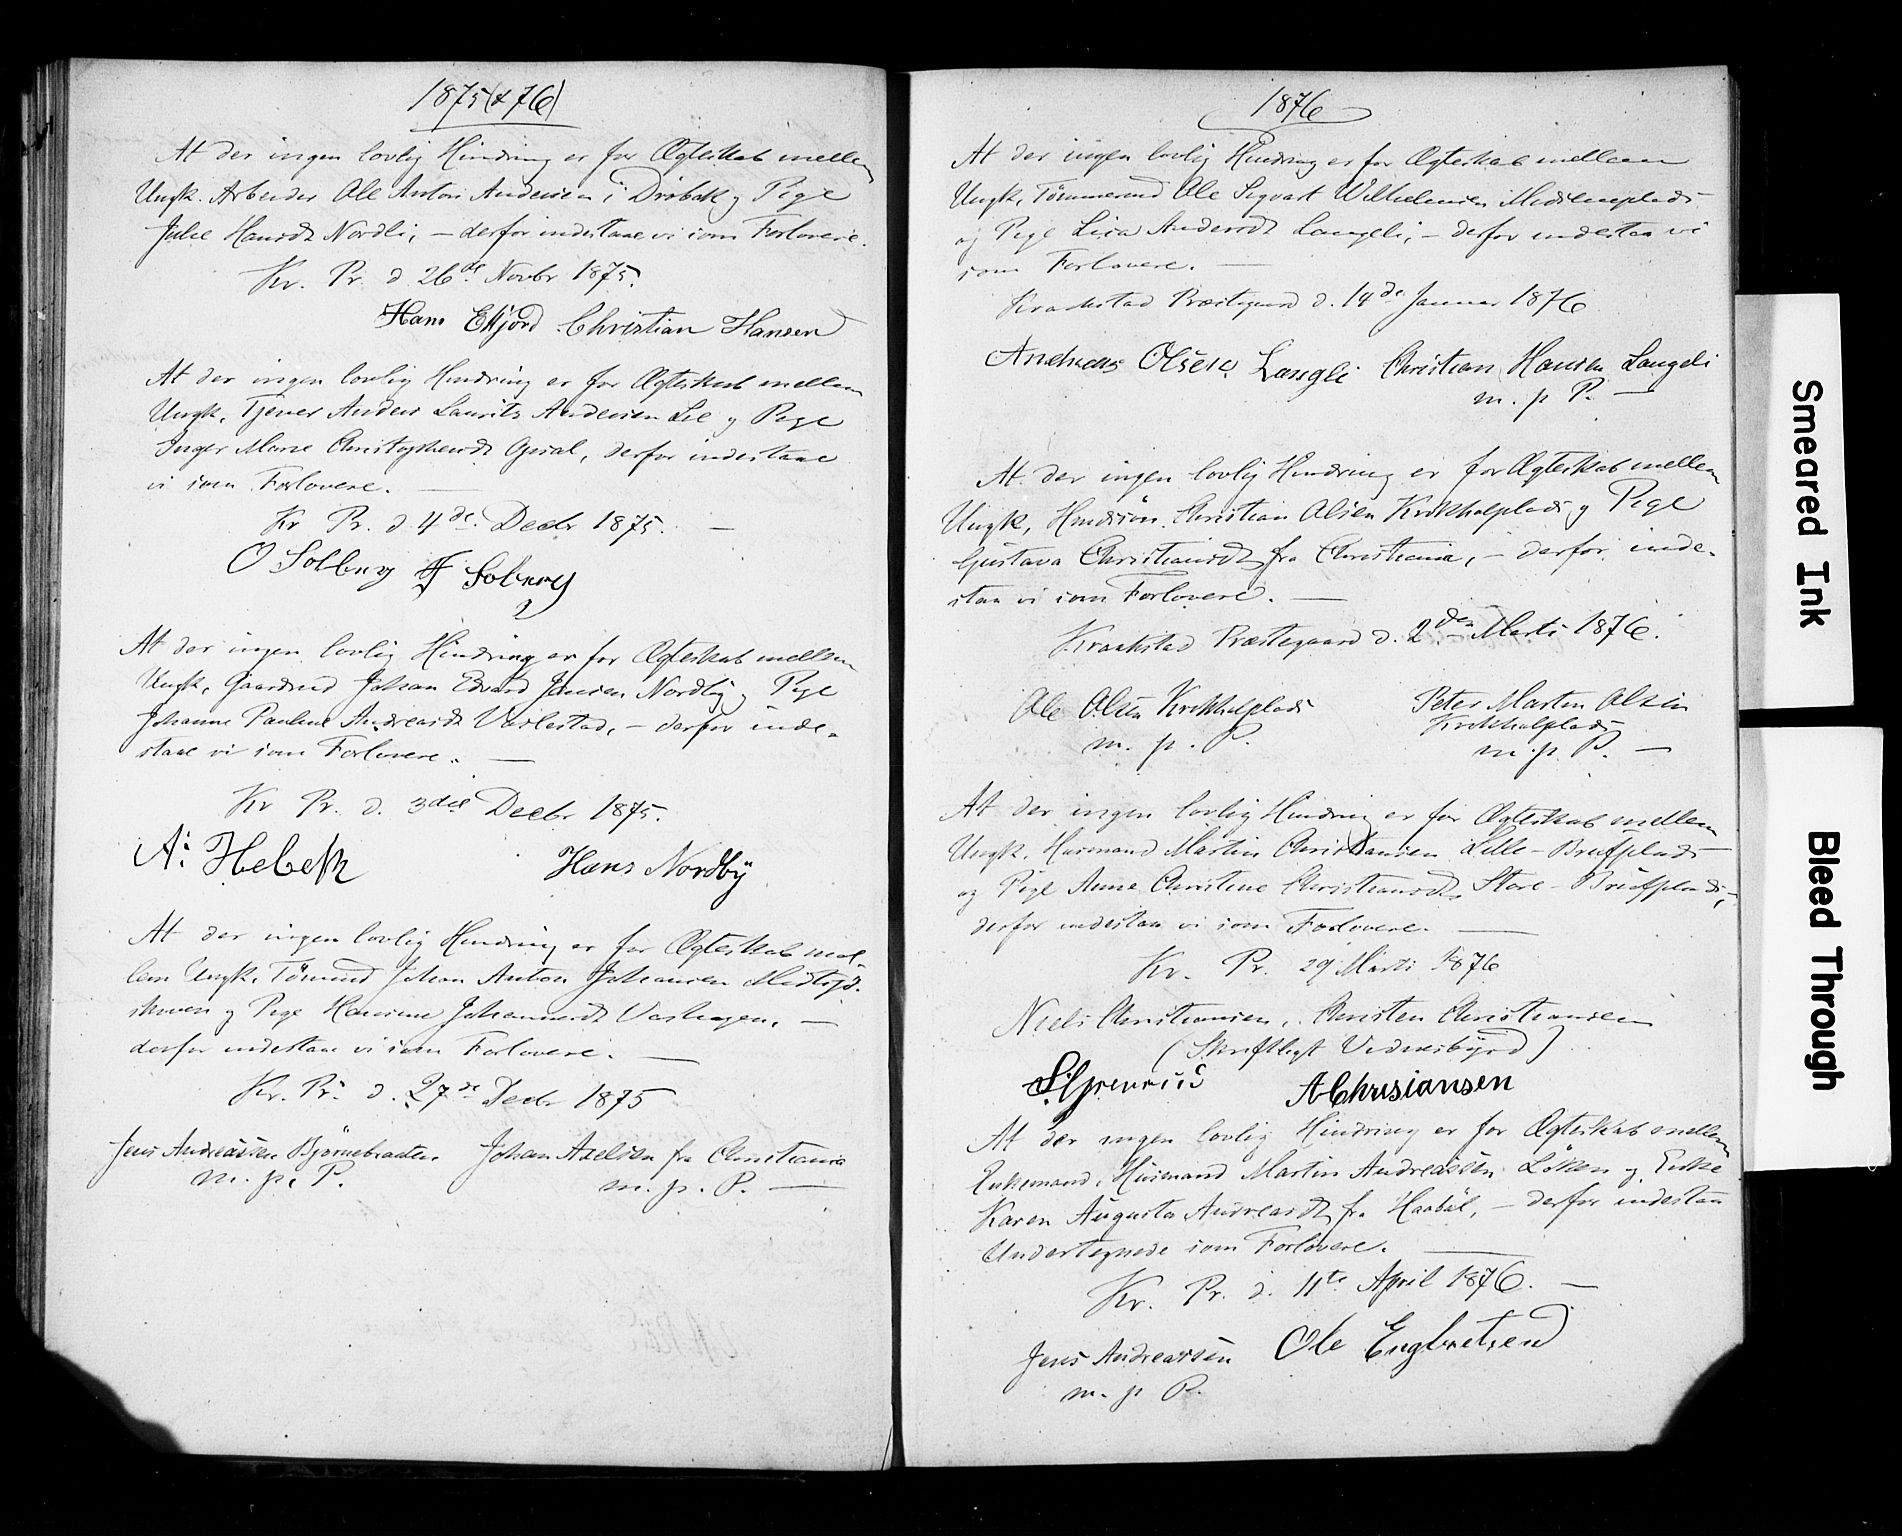 1875 (& 76)
At der ingen lovlig Hindring er for Ægteskab mellem
Ungk. Arbeider Ole Anton Andersen i Drøbak og Pige
Julie Hansdt Nordli, – derfor indestaae vi som Forlovere.
Kr. Pr. d. 26de Novbr 1875.
Hans Christian Hansen
At der ingen lovlig Hindring er for Ægteskab mellem
Ungk. Tjener Anders Laurits Andersen Lie og Pige
Inger Marie Christophersdt derfor indestaae
vi som Forlovere. –
Kr Pr. d. 4de Decbr 1875. –
O Solberg Solberg
At der ingen lovlig Hindring er for Ægteskab mellem
Ungk. Gaardmd Johan Edvard Jensen Nordby og Pige
Johanne Pauline Andreasdt Varlestad, – derfor inde-
staae vi som Forlovere. –
Kr Pr. d. 3die Decbr 1875.
A: Hebek Hans Nordby
At der ingen lovlig Hindring er for Ægteskab mel-
lem Ungk. Tømmd Johan Anton Johansen
skoven og Pige Hansine Johannesdt –
derfor indestaa vi som Forlovere. –
Kr. Pr. d. 27de Decbr 1875
Jens Andreassen Bjørnebraaten Johan Axelsen fra Christiania
m. p. P. m. p. P. –
1876
At der ingen lovlig Hindring er for Ægteskab mellem
Ungk. Tømmermd Ole Sigvart Wilhelmsen
og Pige Lisa Andersdt Langeli, – derfor indestaa vi
som Forlovere. –
Kraakstad Præstegaard d. 14de Januar 1876
Andreas Olsen Langli Christian Hansen Langeli
m. p P. –
At der ingen lovlig Hindring er for Ægteskab mellem
Ungk. Christian Olsen Krokholplads og Pige
Gustava Christiansdt fra Christiania, – derfor inde-
staa vi som Forlovere. –
Kraakstad Præstegaard d. 2den Marts 1876.
Ole Olsen Krokholplads Peter Martin Olsen
Krokholplads
m. p. P. m. p. P. –
At der ingen lovlig Hindring er for Ægteskab mellem
Ungk. Husmand Martin Christiansen Lille-
og Pige Anne Christine Christiansdt, Store-
derfor indestaa vi som Forlovere. –
Kr. Pr. 29 Marts 1876
Niels Christiansen, Christen Christiansen
(Skriftligt Vidnesbyrd)
A Chrisiansen
At der ingen lovlig Hindring er for Ægteskab mellem
Enkemand, Husmand Martin Andreassen Løken og Enke
Karen Augusta Andreasdt, fra Haabøl, – derfor indestaa
Undertegnede som Forlovere. –
Kr. Pr. d. 11te April 1876. –
Jens Andreassen Ole Engbretsen
m. p P.
Smeared Ink
Bleed Through